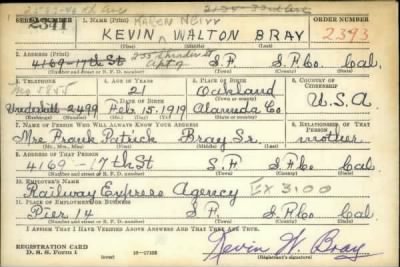 SERIAL NUMBER 1. NAME (Print) ORDER NUMBER
2341 KEVIN WALTON BRAY 2393
(First) (Middle) (Last)
2. ADDRESS (Print)
4169-17th St S.F. S.F.Co. Cal.
Apt 9
(Number and street or R. F. D. number) (Town) (County) (State)
3. TELEPHONE 4. AGE IN YEARS 5. PLACE OF BIRTH 6. COUNTRY OF CITIZENSHIP
21 Oakland
DATE OF BIRTH (Town or county)
Underhill 2499 Feb. 15, 1919 Alameda Co U.S.A.
(Exchange) (Number) (Mo.) (Day) (Yr.) (State or country)
7. NAME OF PERSON WHO WILL ALWAYS KNOW YOUR ADDRESS 8. RELATIONSHIP OF THAT PERSON
Mrs Frank Patrick Bray Sr. mother
(Mr., Mrs., Miss) (First) (Middle) (Last)
9. ADDRESS OF THAT PERSON
4169-17th St S.F. S.F.Co. Cal
(Number and street or R. F. D. number) (Town) (County) (State)
10. EMPLOYER'S NAME
Railway Express Agency EX 3100
11. PLACE OF EMPLOYMENT OR BUSINESS
Pier 14 S.F. S.F.Co. Cal
(Number and street or R. F. D. number) (Town) (County) (State)
I AFFIRM THAT I HAVE VERIFIED ABOVE ANSWERS AND THAT THEY ARE TRUE.
REGISTRATION CARD
D. S. S. Form 1 Kevin W. Bray
(Registrant's signature)